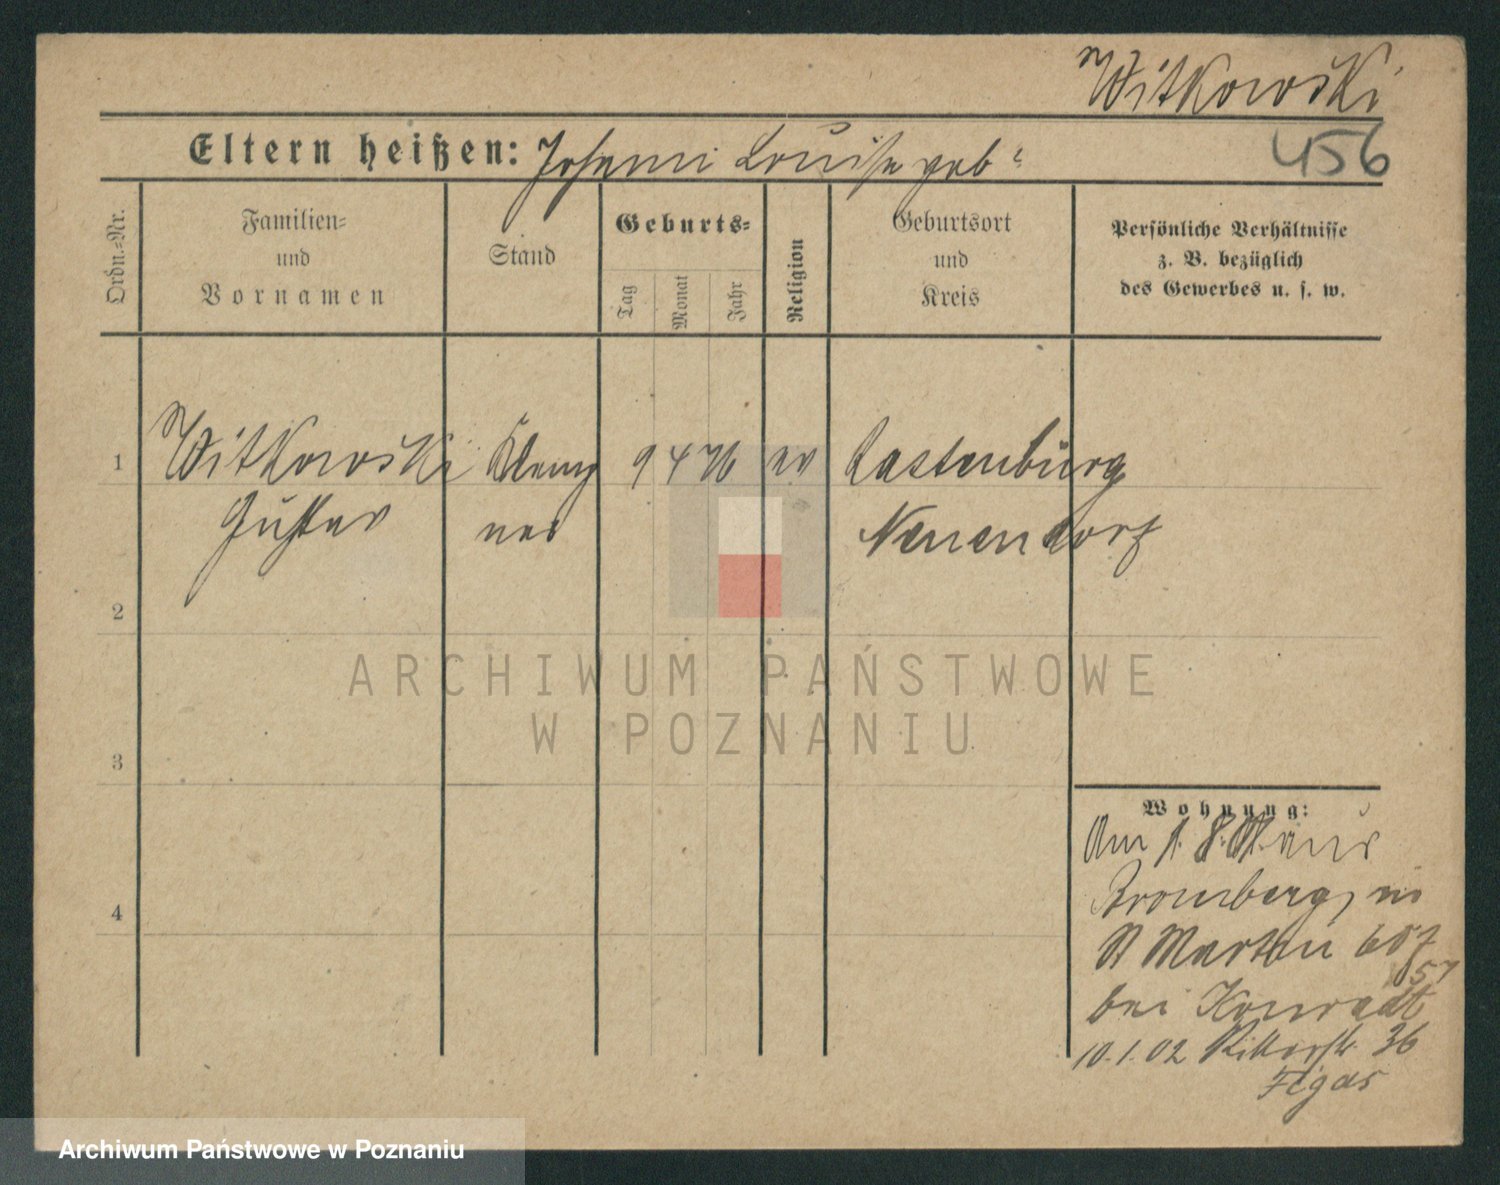 Witkowski
456
Eltern heißen: Johann Louise geb ?
Ordn.=Nr.
Familien=
und
Vornamen
Stand
Geburts=
Tag
Monat
Jahr
Religion
Geburtsort
und
Kreis
Persönliche Verhältnisse
z. B. bezüglich
des Gewerbes u. s. w.
1 Witkowski Klemp 9 4 76 ev Rastenburg
Gustav ner Neuendorf
2
3
4
Wohnung:
Am 1. 8. 01 aus
Bromberg, in
St Martin
57
bei Konradt
10.1.02 Ritterstr. 36
Figas
ARCHIWUM PAŃSTWOWE
W POZNANIU
Archiwum Państwowe w Poznaniu